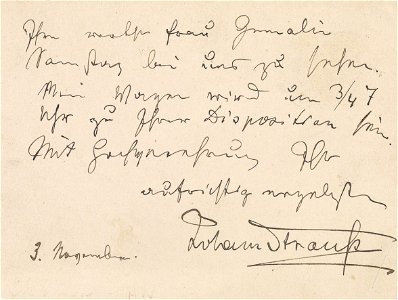 Ihre werthe Frau Gemalin
Samstag bei uns zu sehen.
Mein Wagen wird um 3/4 7
Uhr zu Ihrer Disposition sein.
Mit Hochverehrung Ihr
aufrichtig ergebenster
Johann Strauß
3. November.